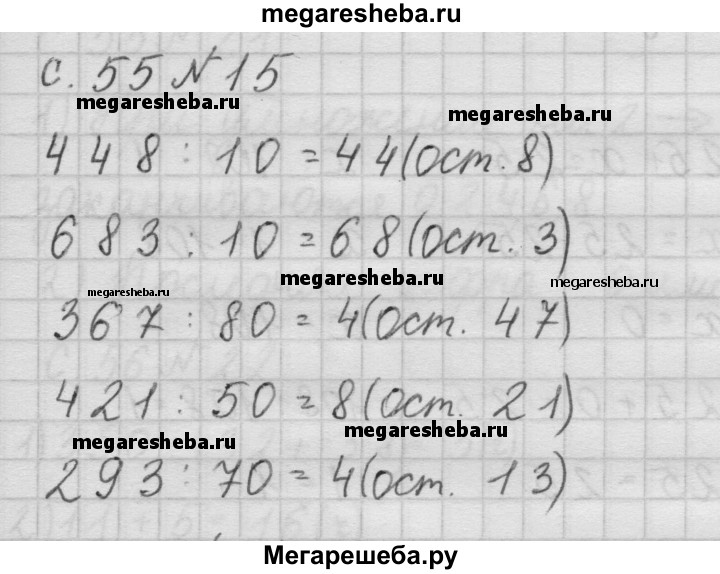 megaresheba.ru
с. 55 № 15
megaresheba.ru
megaresheba.ru
448 : 10 = 44 (ост. 8)
683 : 10 = 68 (ост. 3)
megaresheba.ru
megaresheba.ru
megaresheba.ru
367 : 80 = 4 (ост. 47)
421 : 50 = 8 (ост. 21)
megaresheba.ru
megaresheba.ru
293 : 70 = 4 (ост. 13)
Мегарешеба.ру